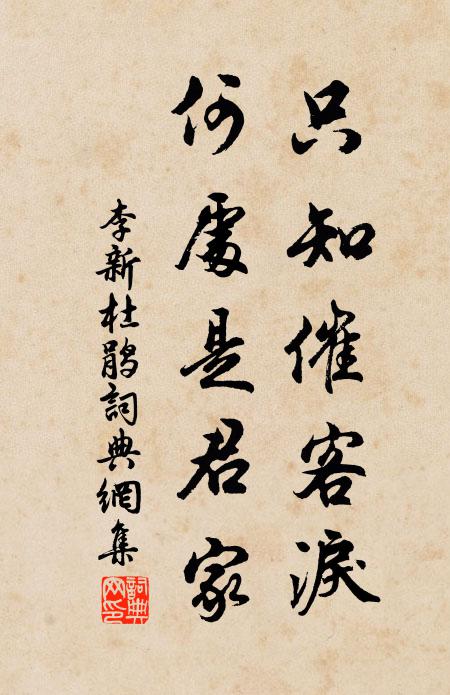 只知催客淚
何處是君家
李新杜鵑詞典網集
詞典網印